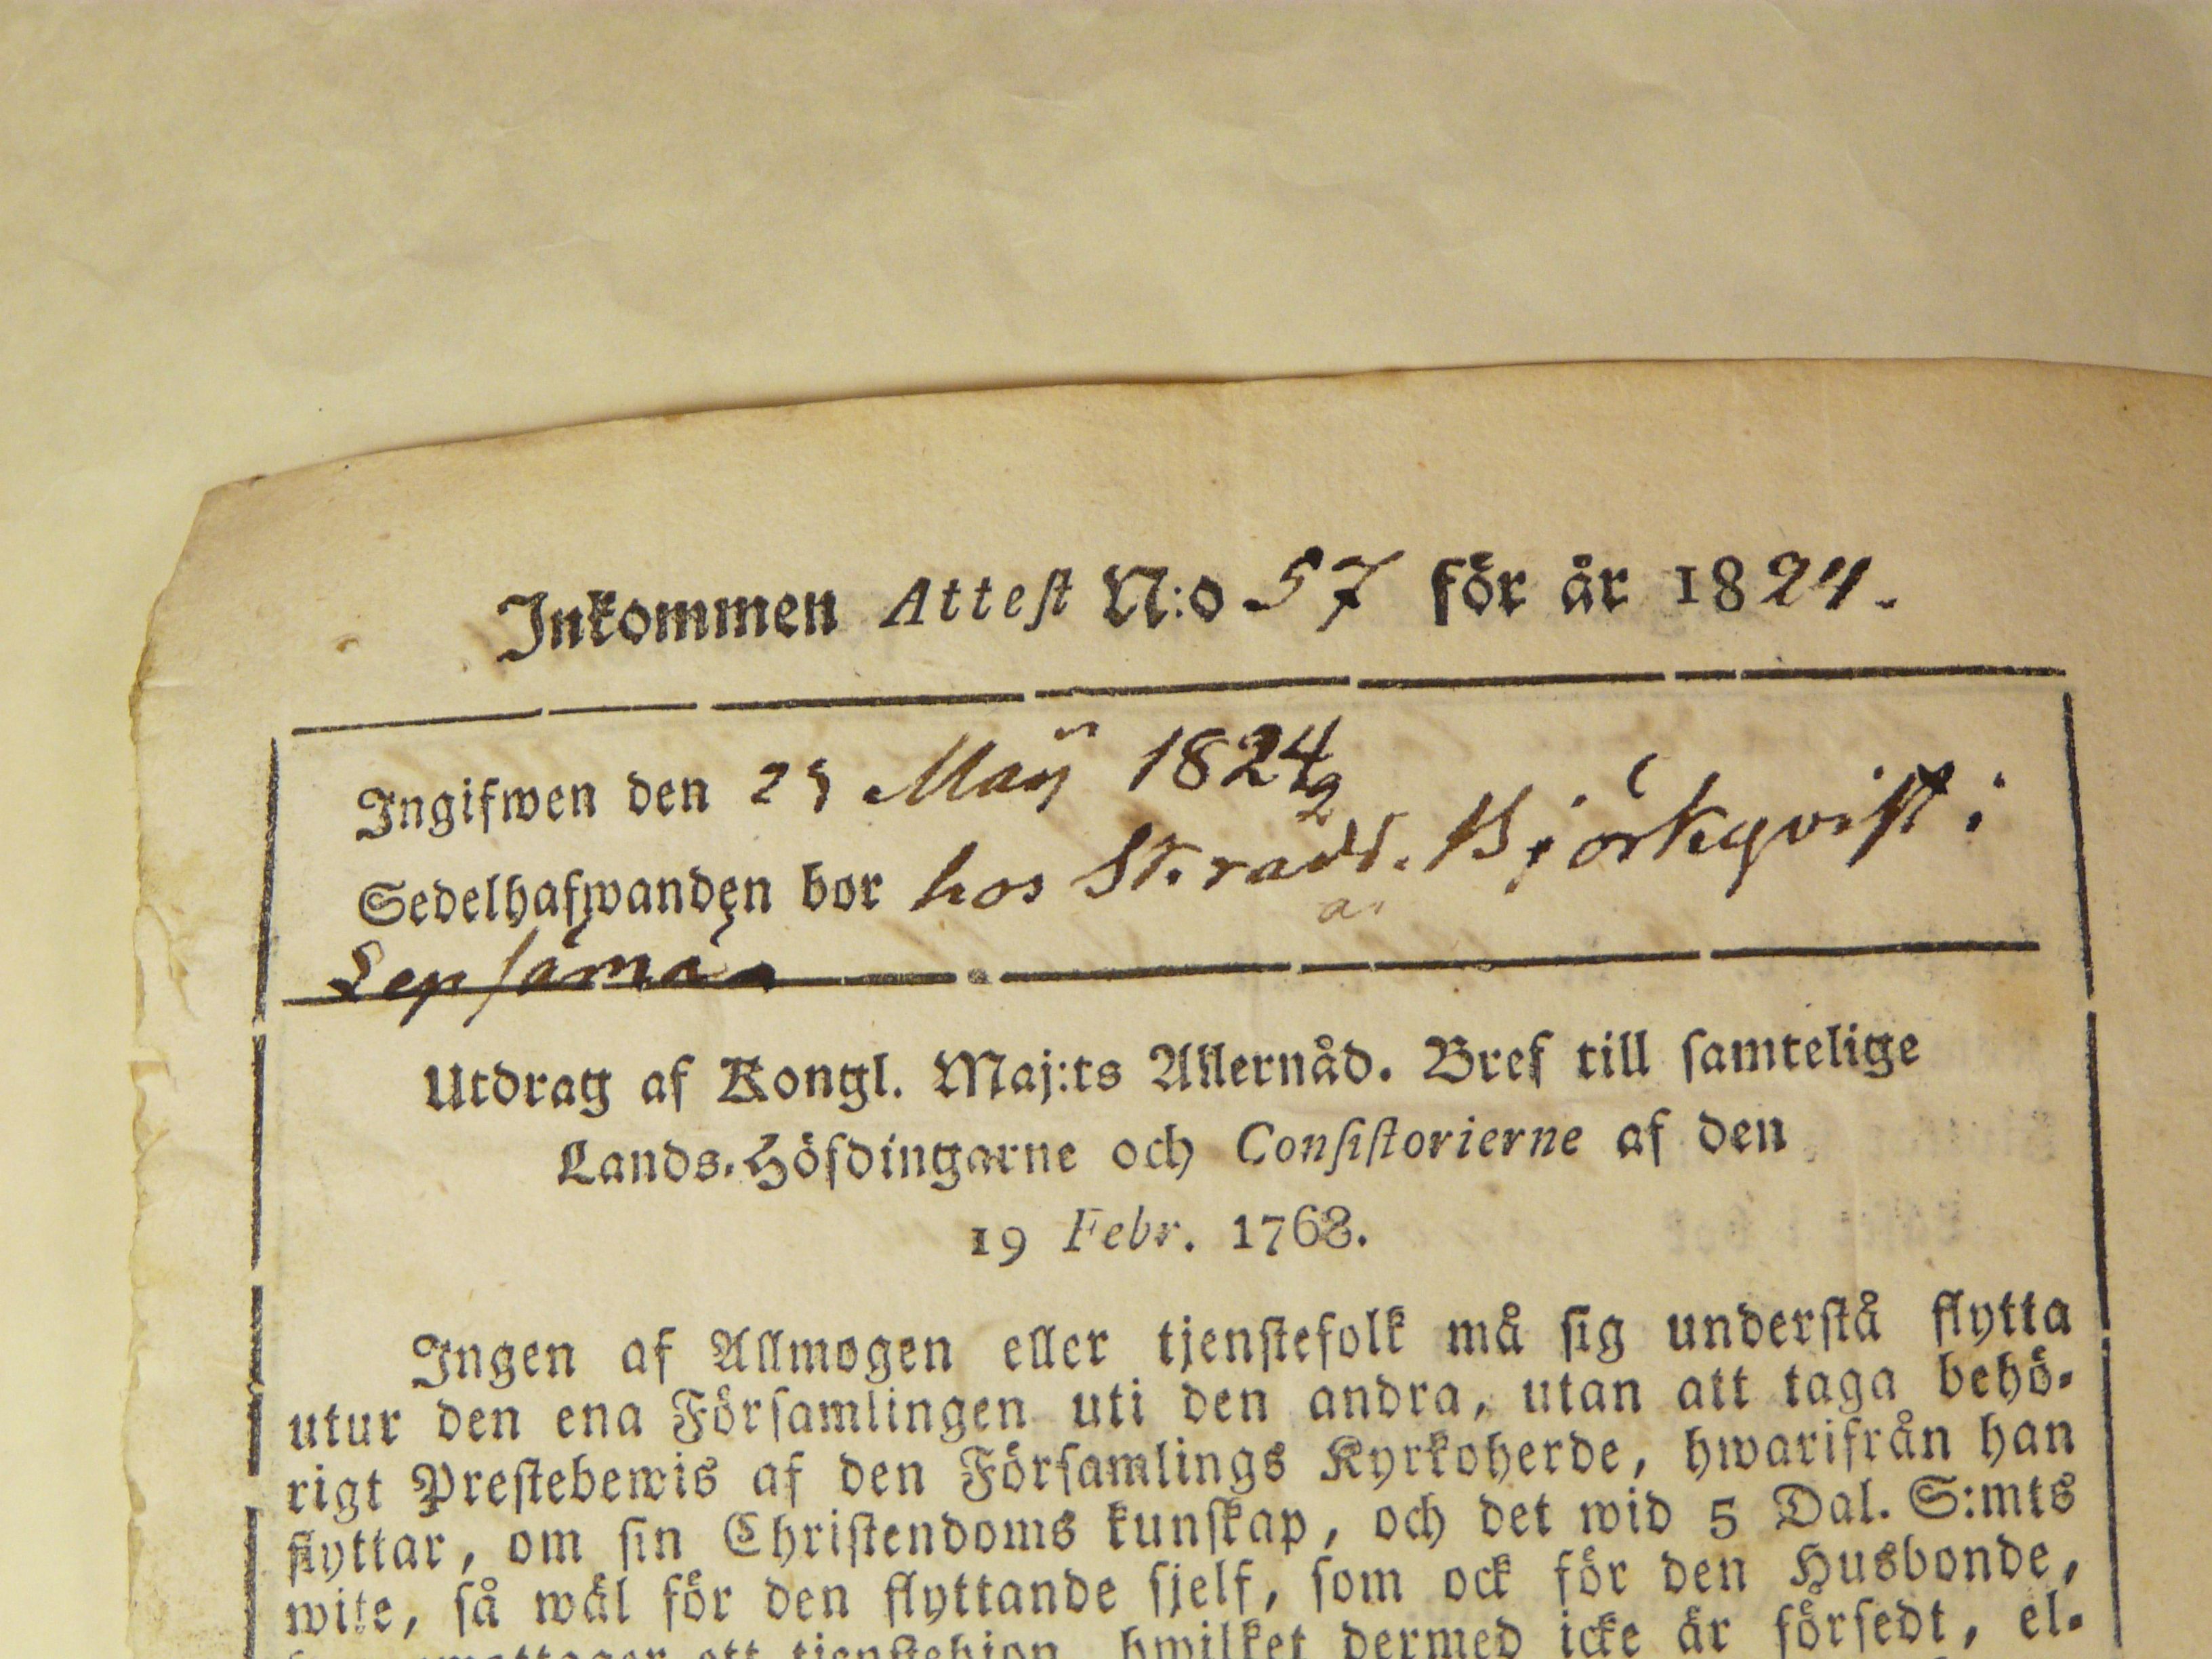 Inkommen Attest N:o 57 för år 1824.
Ingifwen den 25 Maÿ 1824
Sedelhafwanden bor hos Skradd. Björkqvist i
Lepsämä
Utdrag af Kongl. Maj:ts Allernåd. Bref till samtelige
Lands-Höfdingarne och Consistorierne af den
19 Febr. 1768.
Ingen af Allmogen eller tjenstefolk må sig understå flytta
utur den ena Församlingen uti den andra, utan att taga behö-
rigt Prestebewis af den Församlings Kyrkoherde, hwarifrån han
flyttar, om sin Christendoms kunskap, och det wid 5 Dal. S:mts
wite, så wäl för den flyttande sjelf, som ock för den Husbonde,
ett tjenstehjon, hwilket dermed icke är försedt, el-